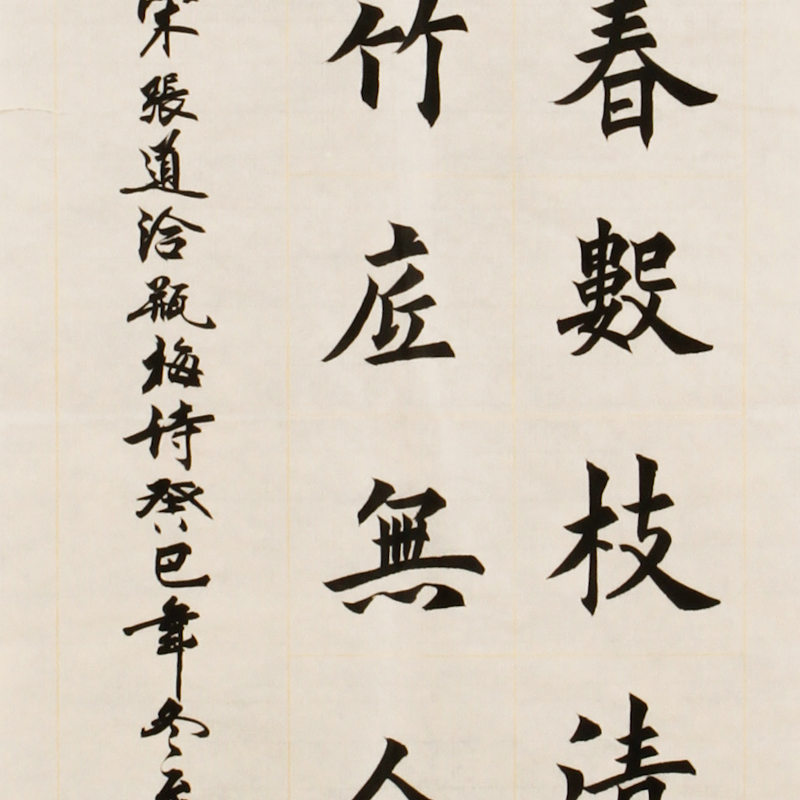 春數枝清
竹底無人
宋張道洽瓶梅詩癸巳年冬至